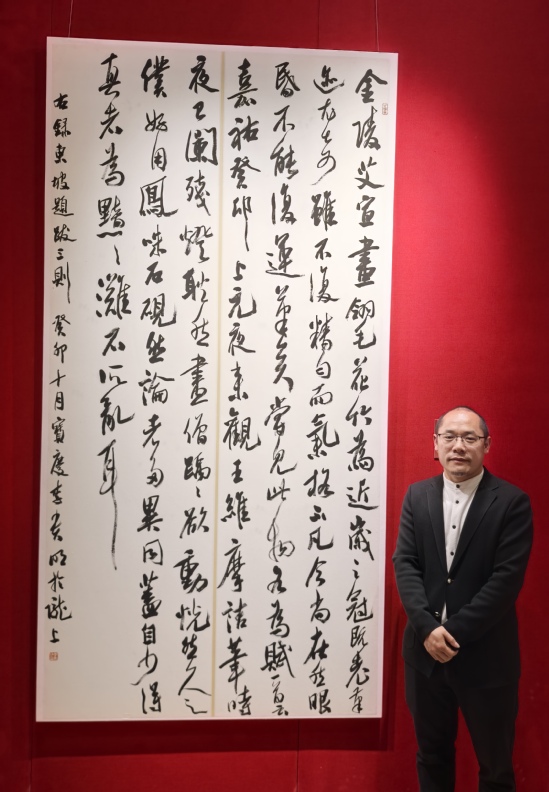 金陵艾宣畫翎毛花竹為近歲之冠既老筆
迹尤奇雖不復精勻而氣格不凡今尚在然眼
昏不能復運筆矣嘗見此物各為賦一首云
嘉祐癸卯上元夜来觀王維摩詰筆時
夜已闌殘燈耿然畫僧踽〻欲動恍然久之
僕好用鳳咮石硯然論者多異同蓋自少得
真者為黯〻灘石所亂耳
右録東坡題跋三則 癸卯十月寶慶李 明於 上